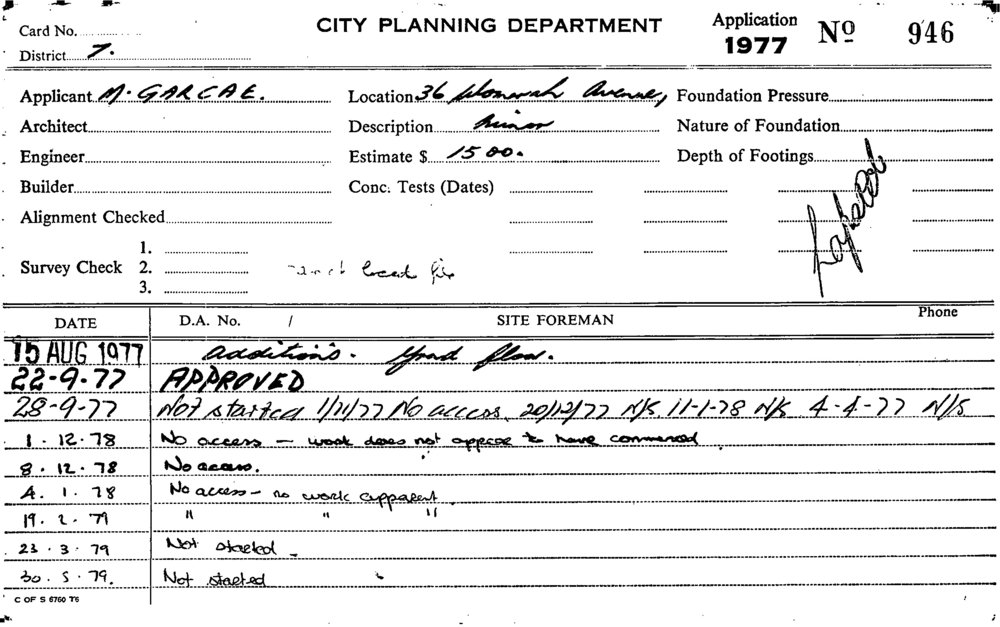 Card No.
CITY PLANNING DEPARTMENT
Application 1977 No 946
District 7.
Applicant M. GARCAE.
Location 36 Avenue,
Foundation Pressure
Architect
Description Minor
Nature of Foundation
Engineer
Estimate $ 1500.
Depth of Footings
Builder
Conc. Tests (Dates)
Alignment Checked
Survey Check 1.
2.
3.
Lapsed
DATE D.A. No. / SITE FOREMAN Phone
15 AUG 1977 additions. Ground floor.
22-9-77 APPROVED
28-9-77 Not started 1/11/77 No access, 20/12/77 N/S 11-1-78 N/S 4-4-77 N/S
1. 12. 78 No access — work does not appear to have commenced
8. 12. 78 No access.
4. 1. 78 No access - no work apparent.
19. 2. 79 " " "
23. 3. 79 Not started -
30. 5. 79. Not started
C OF S 6760 T6